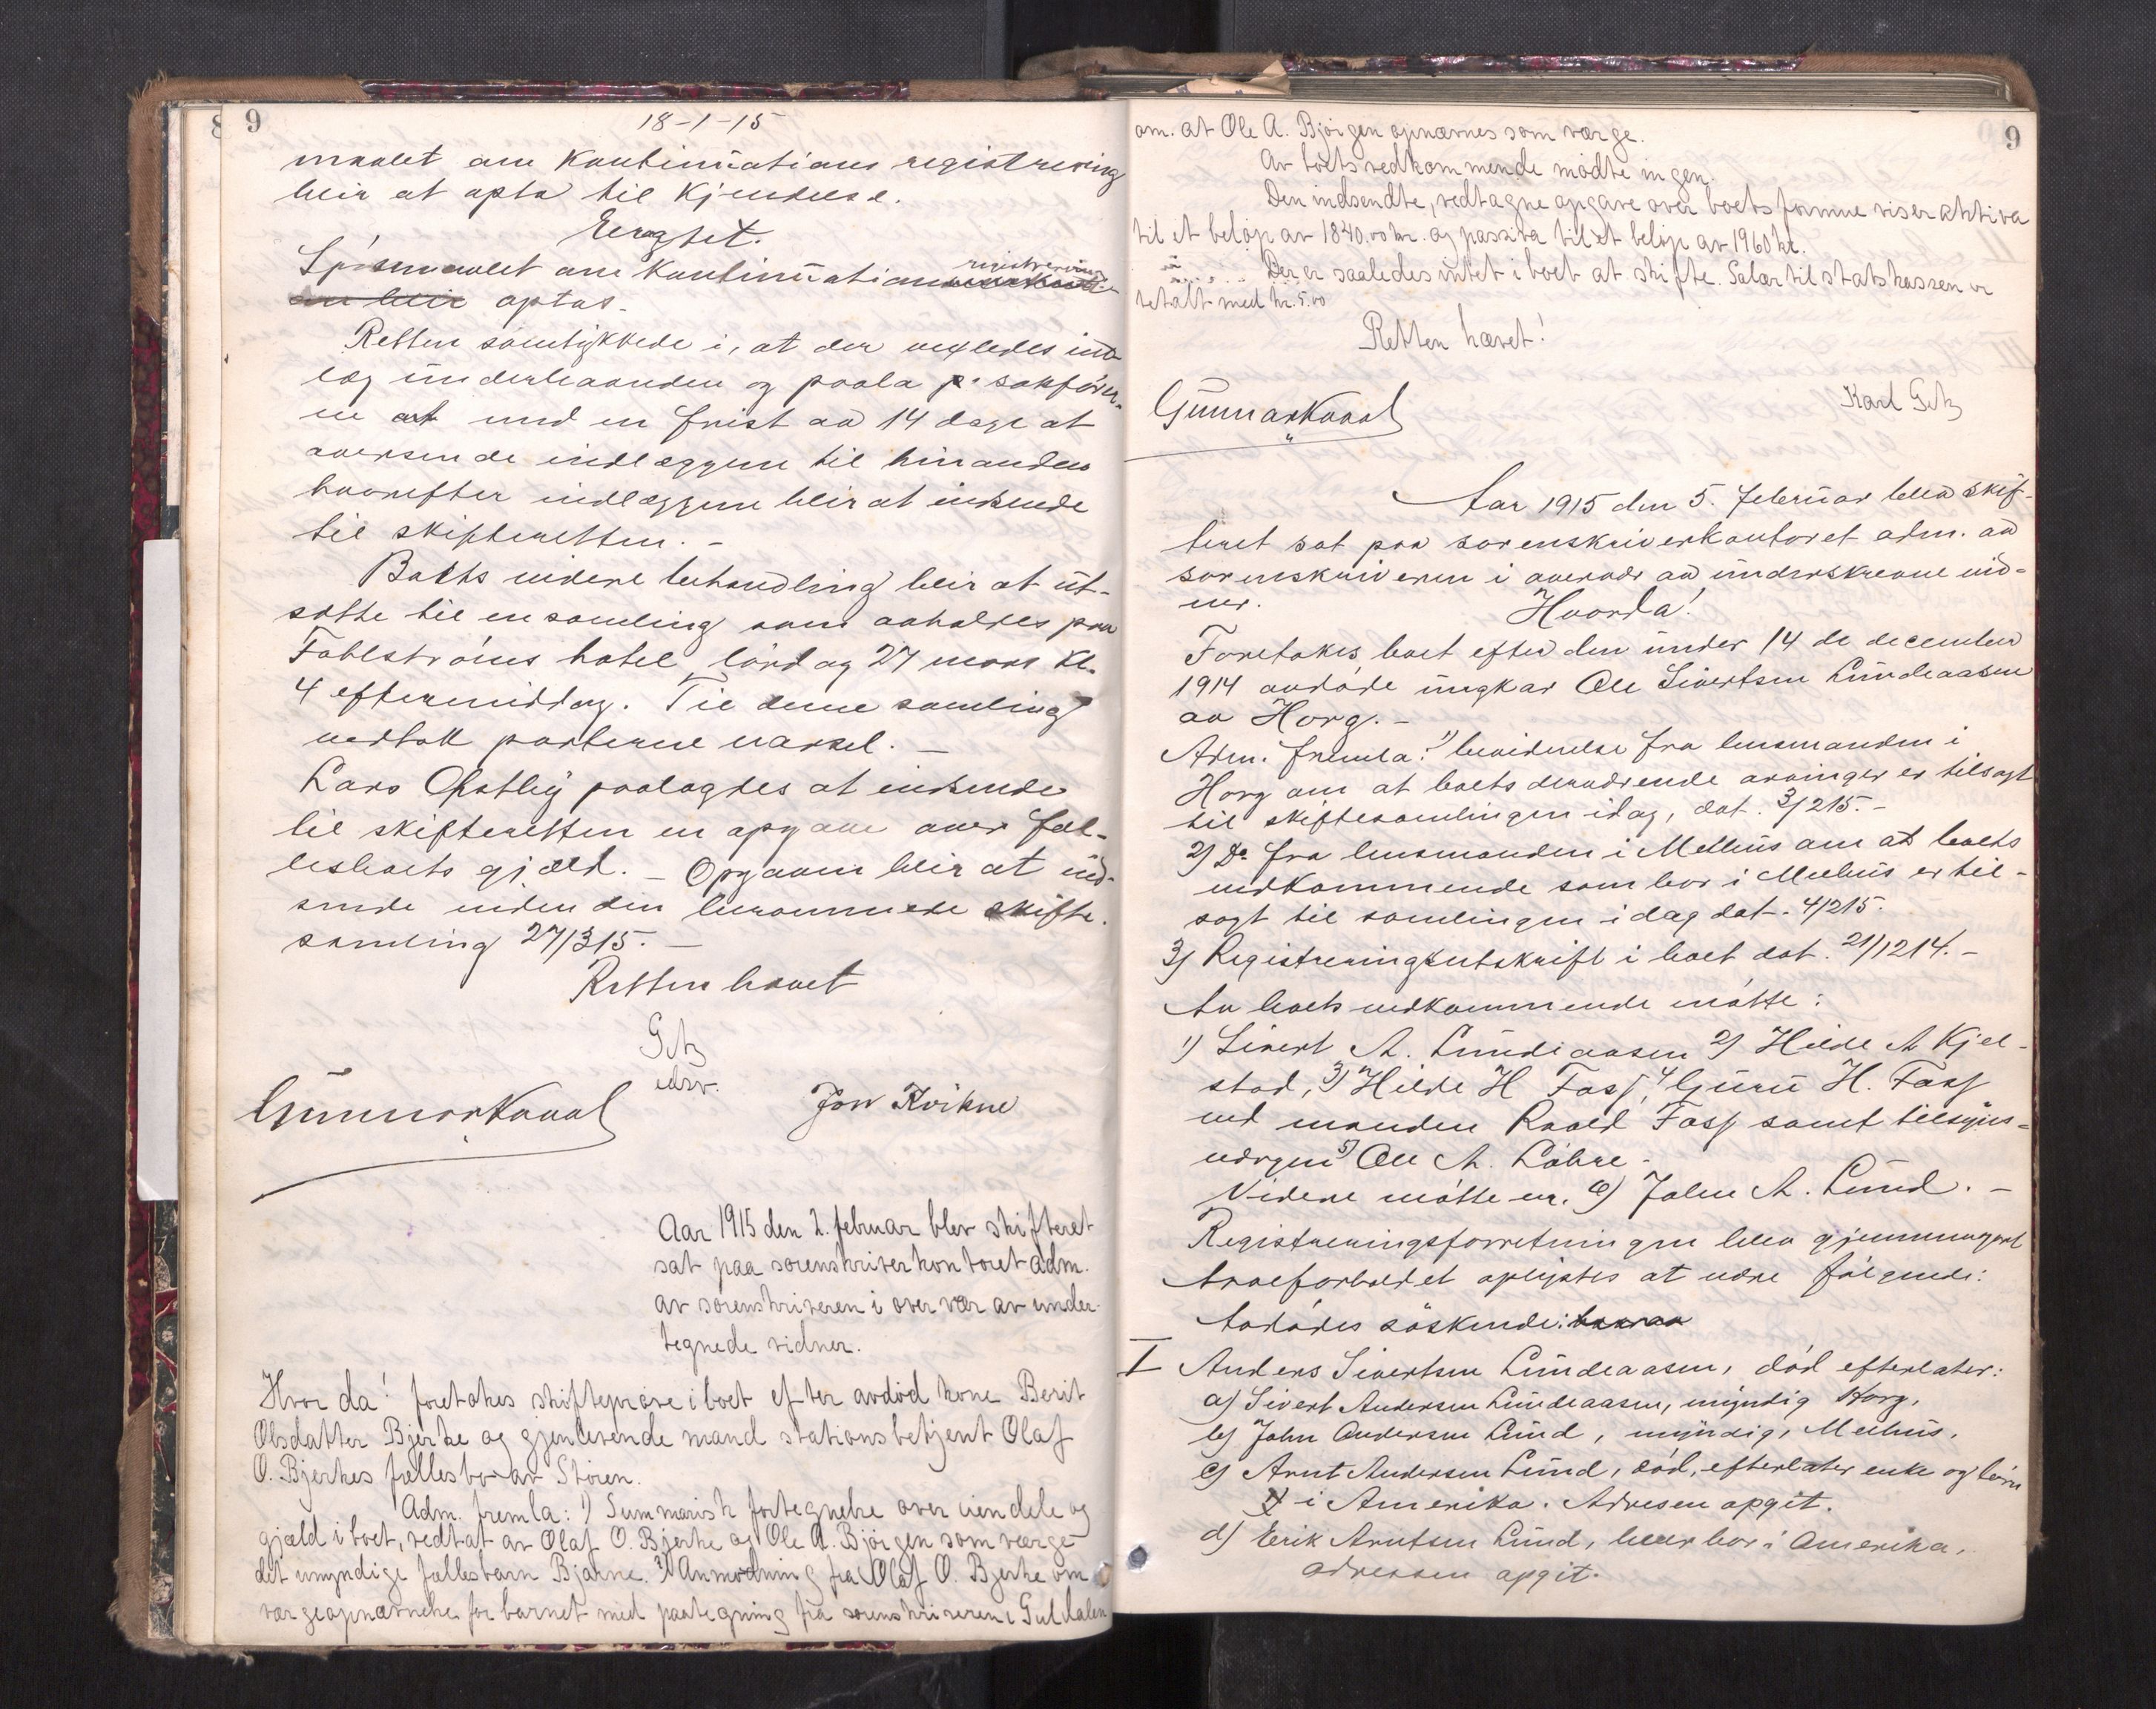 9
18-1-15
maalet om Kontinuations registrering
blir at opta til Kjendelse.
Eragtet.
Spörsmaalet om Kontinuations registrering
om blir optas.
Retten samtykkede i, at der vexledes ind-
læg underhaanden og paala p. sakförer-
ne at med en frist av 14 dage at
oversende indlæggene til hinanden
hvorefter indlæggene blir at indsende
til skifteretten. -
Boets videre behandling blir at ut-
sætte til en samling som avholdes paa
Fahlströms hotel lördag 27 mars Kl.
4 eftermiddag. Til denne samling
vedtok parterne varsel. -
Lars Østby paalagdes at indsende
til skifteretten en opgave over fæl-
lesboets gjæld. - Opgaven blir at ind-
sende inden den berammede skifte-
samling 27/3 15. -
Retten hævet
Getz
edsv.
Gunnar Kaaal
Jon Kvikne
Aar 1915 den 2. februar blev skifteret
sat paa sorenskriverkontoret adm.
av sorenskriveren i overvær av under-
tegnede vidner.
Hvor da! foretakes skifteprøve i boet efter avdöd kone Berit
Olsdatter Bjerke og gjenlevende mand stationsbetjent Olaf
O. Bjerkes fællesbo av Stören.
Adm. fremla: 1) Summarisk fortegnelse over eiendele og
gjæld i boet, vedtat av Olaf O. Bjerke og Ole A. Bjørgen som værge
det umyndige fællesbarn Bjarne. 2) Anmodning fra Olaf O. Bjerke om
værgeopnævnelse for barnet med paategning fra sorenskriveren i Guldalen
9
om. at Ole A. Bjørgen opnævnes som værge.
Av boets vedkommende mödte ingen.
Den indsendte, vedtagne opgave over boets formue viser aktiva
til et belöp av 1840.00 kr. og passiva til et belöp av 1960 kr.
Der er saaledes intet i boet at skifte. Salær til statskassen er
betalt med kr. 5.00
Retten hævet!
Gunnar Kaaal
Karl Getz
Aar 1915 den 5. februar blev skif-
teret sat paa sorenskriverkontoret adm. av
sorenskriveren i overvær av underskrevne vid-
ner.
Hvorda!
Foretokes boet efter den under 14 de december
1914 avdöde ungkar Ole Sivertsen Lundeaasen
av Horg. -
Adm. fremla: 1) bevidnelse fra lensmanden i
Horg om at boets derværende arvinger er tilsagt
til skiftesamlingen idag, dat. 3/2 15. -
2) Do fra lensmanden i Melhus om at boets
vedkommende som bor i Melhus er til-
sagt til samlingen i dag dat. 4/2 15.
3) Registreringsutskrift i boet dat. 21/12 14. -
Av boets vedkommende mötte:
1) Sivert A. Lundeaasen 2) Hilde A Kjel-
stad, 3) Hilde H Foss, 4) Guru H. Foss
ved manden Roald Foss samt tilsyns-
værgen 5) Ole A. Löhre.
Videre mötte nr. 6) John A. Lund. -
Registreringsforretningen blev gjennemgaat
Arveforholdet oplystes at være fölgende:
Avdödes söskende:
I Anders Sivertsen Lundeaasen, död efterlater:
a) Sivert Andersen Lundeaasen, myndig Horg,
b) John Andersen Lund, myndig, Melhus,
c) Arnt Andersen Lund, död, efterlater enke og börn
i Amerika. Adresen opgit.
d) Erik Arntsen Lund, bor i Amerika,
adressen opgit.